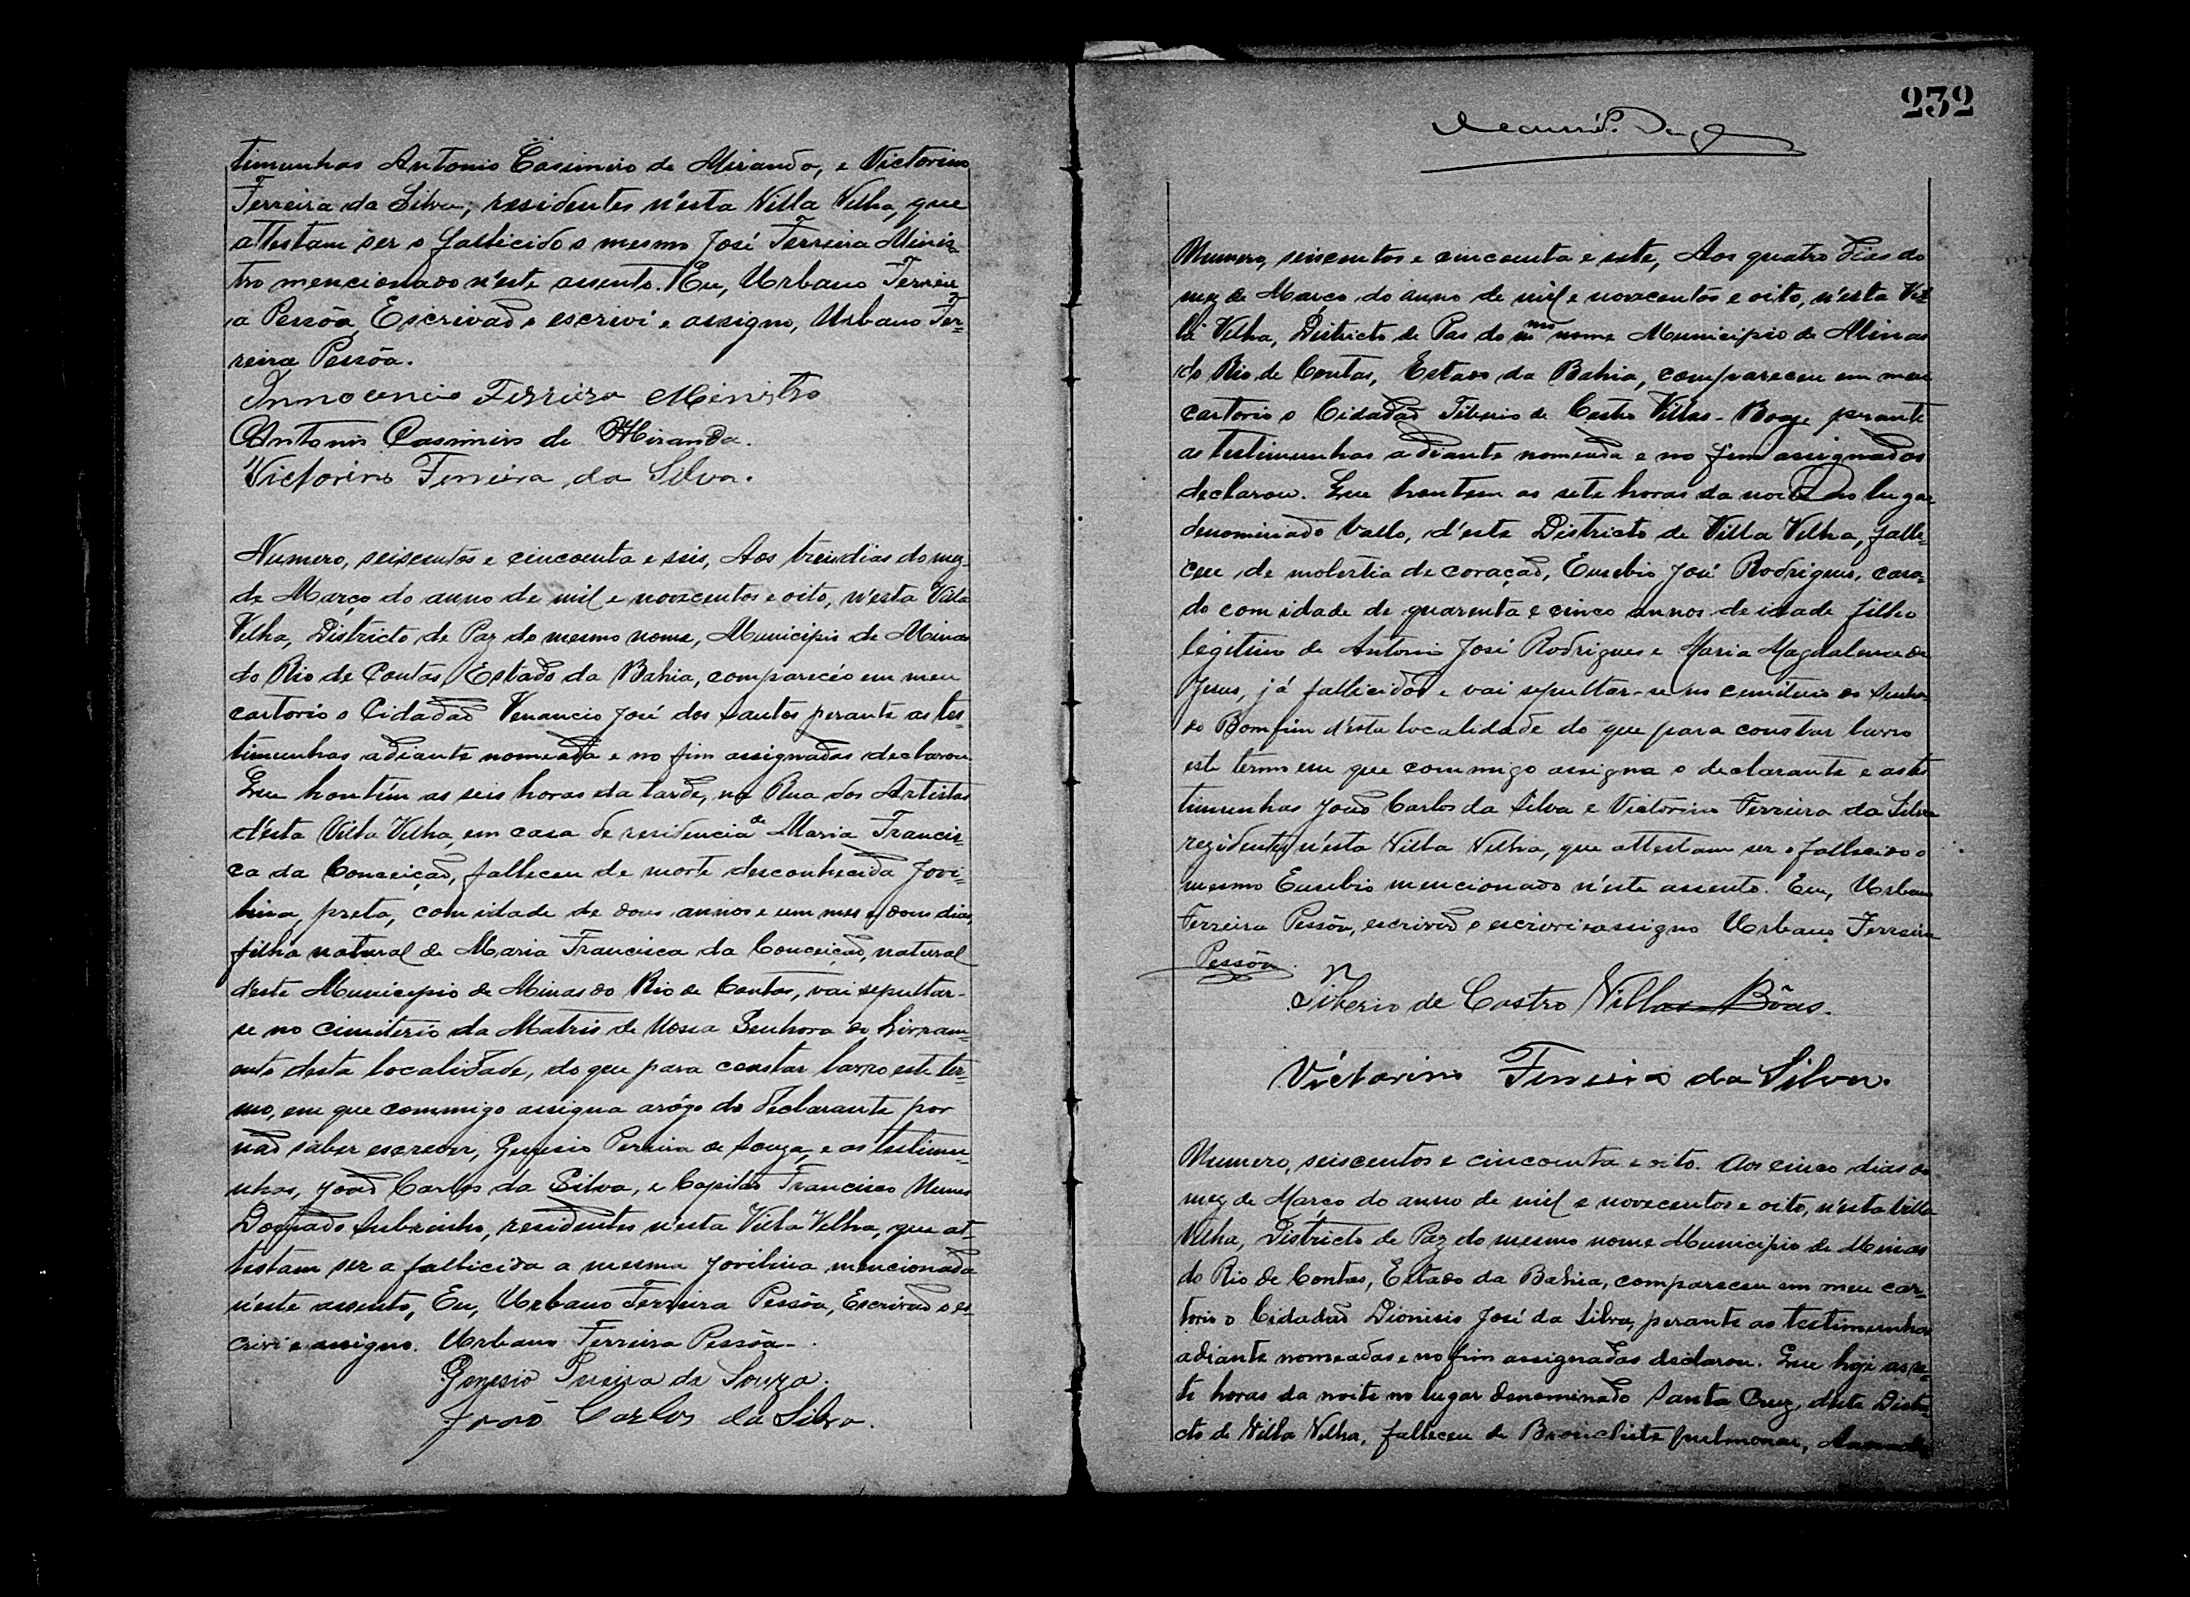 timunhas Antonio Casimiro de Miranda, e Victorino
Ferreira da Silva, residentes n'esta Villa Velha, que
attestam ser o fallicido o mesmo José Ferreira Minis-
tro mencionado n'este assento. Eu, Urbano Ferrei-
ra Pessôa, Escrivão o escrivi e assigno, Urbano Fer=
reira Pessôa.
Innocencio Ferreira Ministro
Antonio Casimiro de Miranda.
Victorino Ferreira da Silva.
Numero, seiscentos e cincoenta e seis, Aos tres dias do mez
de Março do anno de mil e novecentos e oito, n'esta Villa
Velha, Districto de Paz do mesmo nome, Municipio de Minas
do Rio de Contas, Estado da Bahia, compareceo em meu
cartorio o Cidadão Venancio José dos Santos perante as tes=
timunhas adiante nomeada e no fim assignadas declarou
Que hontem as seis horas da tarde, na Rua dos Artistas
d'esta Villa Velha, em casa de residencia de Maria Francis=
ca da Conceição, falleceu de morte desconhecida Jovi=
lina, preta, com idade de dous annos e um mes e dous dias,
filha natural de Maria Francisca da Conceição, natural
d'este Municipio de Minas do Rio de Contas, vai sepultar-
se no cimiterio da Matris de Nossa Senhora do Livram=
ento desta localidade, do que para constar lavro este ter=
mo, em que commigo assigna arôgo do declarante por
não saber escrever, Genesio Pereira de Souza, e as testimu=
nhas, João Carlos da Silva, e Capitão Francisco Nunes
Dourado Subrinho, residentes n'esta Villa Velha, que at=
testam ser a fallicida a mesma Jovilina mencionada
n'este assento, Eu, Urbano Ferreira Pessôa, Escrivão o es
crivi e assigno. Urbano Ferreira Pessôa.
Genesio Pereira de Souza.
João Carlos da Silva.
232
Numero, seiscentos e cincoenta e sete, Aos quatro dias do
mez de Março do anno de mil e novecentos e oito, n'esta Vil
la Velha, Districto de Pas do mmo nome Municipio de Minas
do Rio de Contas, Estado da Bahia, compareceu em meu
cartorio o Cidadão Tiberio de Castro Villas-Boas perante
as testimunhas adiante nomeada e no fim assignadas
declarou. Que hontem as sete horas da noite no lugar
denominado Vallo, d'este Districto de Villa Velha, falle=
ceu de molestia de coração, Eusebio José Rodrigues, casa=
do com idade de quarenta e cinco annos de idade filho
legitimo de Antonio José Rodrigues e Maria Magdalena de
Jesus, já fallicidos e vai sepultar-se no cemiterio do Senhor
do Bomfim d'esta localidade do que para constar lavro
este termo em que commigo assigna o declarante e as tes
timunhas João Carlos da Silva e Victorino Ferreira da Silva
rezidentes n'esta Villa Velha, que attestam ser o fallicido o
mesmo Eusebio mencionado n'este assento. Eu, Urbano
Ferreira Pessôa, escrivão o escrivi e assigno Urbano Ferreira
Pessôa.
Tiberio de Castro Villas-Bôas.
Victorino Ferreira da Silva.
Numero, seiscentos e cincoenta e oito. Aos cinco dias do
mez de Março do anno de mil e novecentos e oito, n'esta Villa
Velha, Districto de Paz do mesmo nome Municipio de Minas
do Rio de Contas, Estado da Bahia, compareceu em meu car=
torio o Cidadão Dionisio José da Silva, perante as testimunhas
adiante nomeadas e no fim assignadas declarou. Que hoje as se=
te horas da noite no lugar denominado Santa Cruz, d'este Distri=
cto de Villa Velha, falleceu de Bronchite pulmonar,